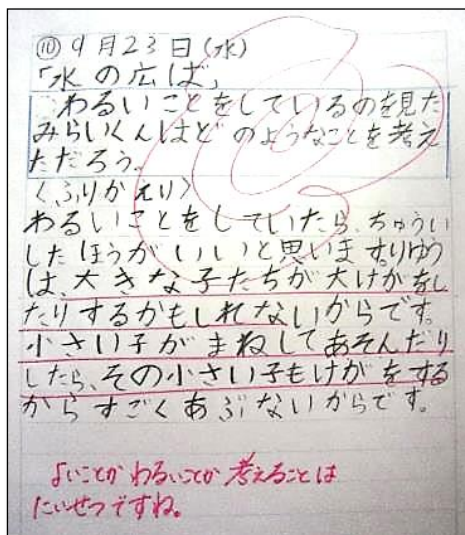 ⑩ 9月23日(水)
「水の広ば」
わるいことをしているのを見た
みらいくんはどのようなことを考え
ただろう。
〈ふりかえり〉
わるいことをしていたら、ちゅうい
したほうがいいと思います。りゆう
は、大きな子たちが大けがをし
たりするかもしれないからです。
小さい子がまねしてあそんだり
したら、その小さい子もけがをする
からすごくあぶないからです。
よいことかわるいことか考えることは
たいせつですね。